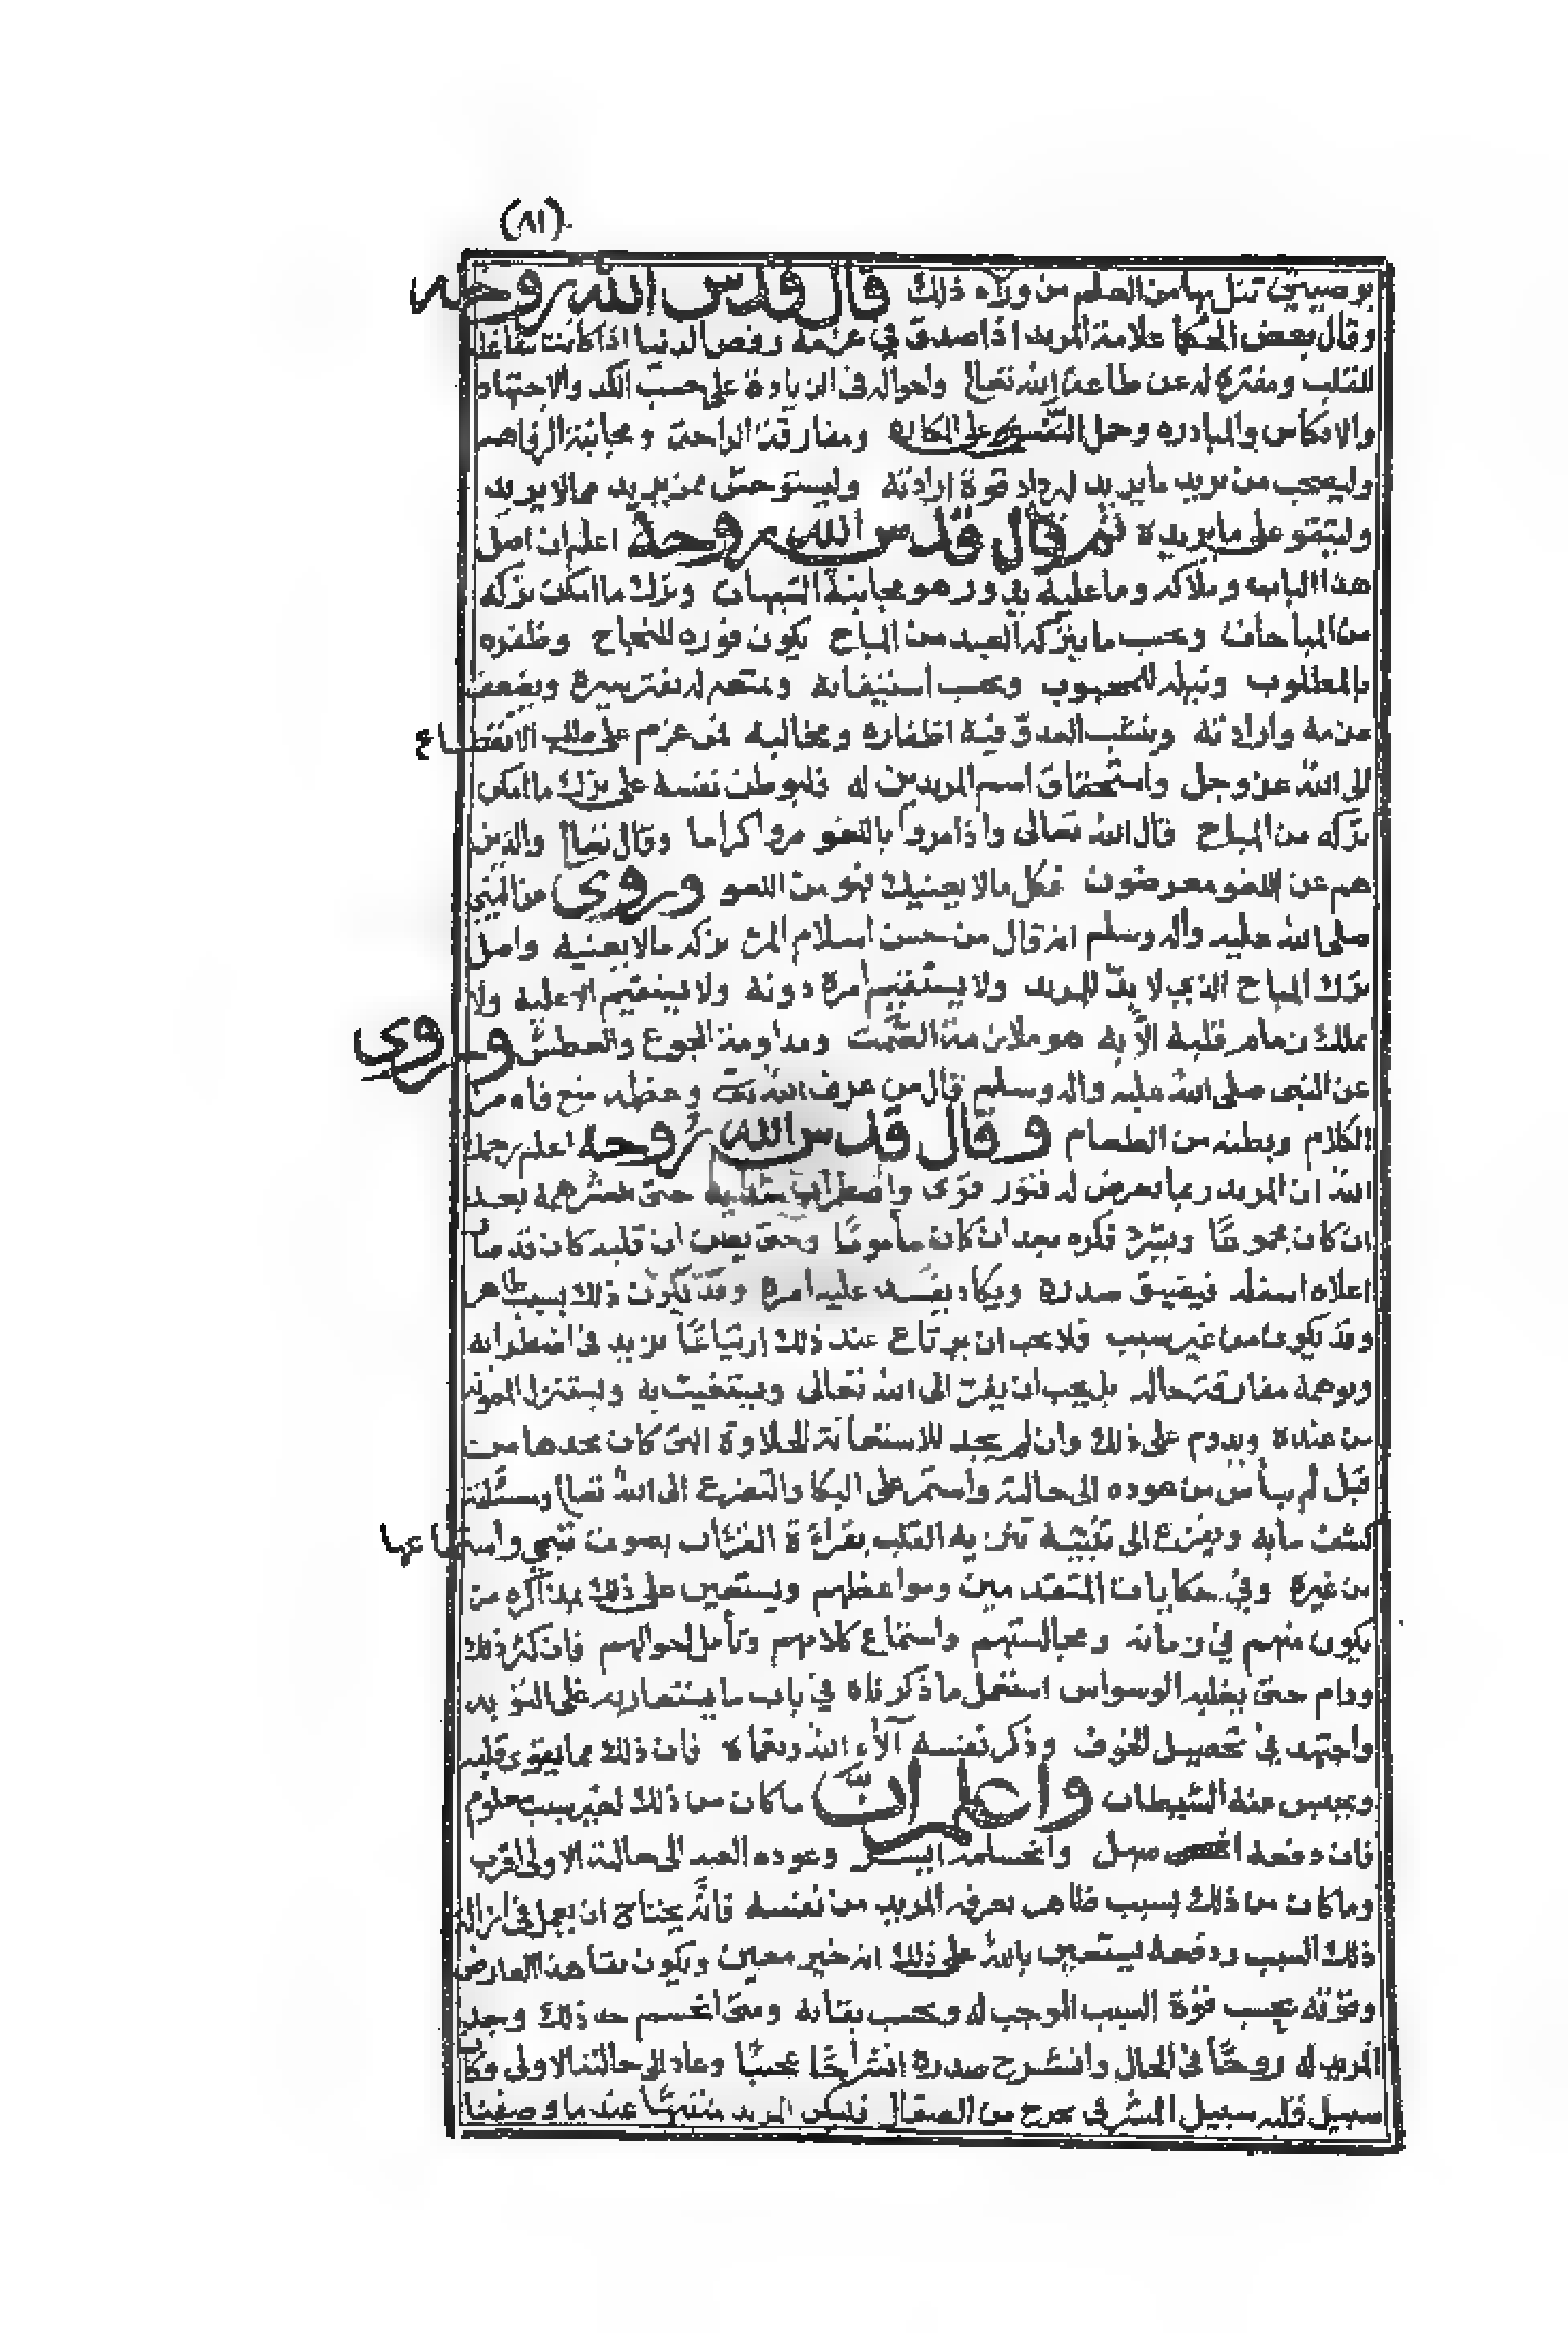 (٨١)
بوصيتي تنل بها من العلم من وراء ذلك قال قدس الله روحه
وقال بعض الحكما علامة المريد اذا صدق في عزمه رفض الدنيا اذا كانت شاغله
للقلب ومفترة له عن طاعة الله تعالى واحواله في الزيادة على حسب الكد والاجتهاد
والانكماش والمبادره وحمل النفس على المكاره ومفارقة الراحة ومجانبة الرفاهيه
وليصحب من يريد ما يريد ليزداد قوة ارادته وليستوحش ممن يريد مالا يريد
وليتقو على ما يريده ثم قال قدس الله روحه اعلم ان اصل
هذا الباب وملاكه وما عليه يدور هو مجانبة الشبهات وترك ما امكن تركه
من المباحات وبحسب ما يتركه العبد من المباح يكون فوزه للنجاح وظفره
بالمطلوب ونيله للمحبوب وبحسب استيفائه وتمتعه به يفتر سيره ويضعف
عزمه وارادته وينشب العدو فيه اظفاره ومخالبه فمن عزم على طلب الانقطاع
الى الله عز وجل واستحقاق اسم المريدين له فليوطن نفسه على ترك ما امكن
تركه من المباح قال الله تعالى واذا مروا باللغو مروا كراما وقال تعالى والذين
هم عن اللغو معرضون فكل مالا يعنيك فهو من اللغو وروى عن النبي
صلى الله عليه واله وسلم انه قال من حسن اسلام المرء تركه مالا يعنيه واصل
ترك المباح الذي لا بد للمريد ولا يستقيم امره دونه ولا يستقيم الا عليه ولا
يملك زمام قلبه الا به هو ملازمة الصمت ومداومة الجوع والعطش وروى
عن النبي صلى الله عليه واله وسلم قال من عرف الله وعظمه منع فاه من
الكلام وبطنه من الطعام وقال قدس الله روحه اعلم رحمك
الله ان المريد ربما يعرض له فتور قوى واضطراب حتى همه بعد
ان كان مجموعا فكره بعد ان كان وحتى يظن ان قلبه كان قد صار
اعلاه اسفله فيضيق صدره ويكاد يفسد عليه امره وقد يكون ذلك بسبب ظاهر
وقد يكون من غير سبب فلا يجب ان يرتاع عند ذلك ارتياعا يزيد في اضطرابه
ويوهمه مفارقة حاله بل يجب ان يفر الى الله تعالى ويستغيث به ويستنزل المعونه
من عنده ويدوم على ذلك وان لم يجد للاستعانة الحلاوة التي كان يجدها من
قبل لم ييأس من عوده الى حالته واستمر على البكا والتضرع الى الله تعالى ومسئلته
كشف ما به ويفزع الى القلب بقراءة القرآن بصوت شجي واستماعها
من غيره وفي حكايات المتقدمين ومواعظهم ويستعين على ذلك بمذاكره من
يكون منهم في زمانه ومجالستهم واستماع كلامهم وتأمل احوالهم فان كثر ذلك
ودام حتى يغلبه الوسواس استعمل ما ذكرناه في باب ما يستعان به على التوبه
واجتهد في تحصيل الخوف وذكر نفسه آلاء الله ونعماه فان ذلك مما يقوي قلبه
عنه الشيطان واعلم ان ما كان من ذلك لغير سبب معلوم
فان دفعه سهل وانحسامه ايسر وعوده العبد الى حالته الاولى اقرب
وما كان من ذلك بسبب ظاهر يعرفه المريد من نفسه فانه يحتاج ان يعمل في ازالة
ذلك السبب ودفعه يستعين بالله على ذلك انه خير معين ويكون بقا هذا العارض
وقوته بحسب قوة السبب الموجب له وبحسب بقائه ومتى انحسم عنه ذلك وجد
المريد له روحا في الحال وانشرح صدره انشراحا عجيبا وعاد الى حالته الاولى وكان
سبيل قلبه سبيل يخرج من الصقال فليكن المريد متنبها عند ما وصفنا